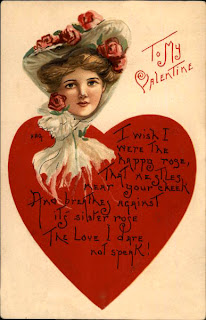 To My
Valentine
I wish I
were the
happy rose,
That nestles
near your cheek
And breathes against
its sister rose
The Love I dare
not speak!